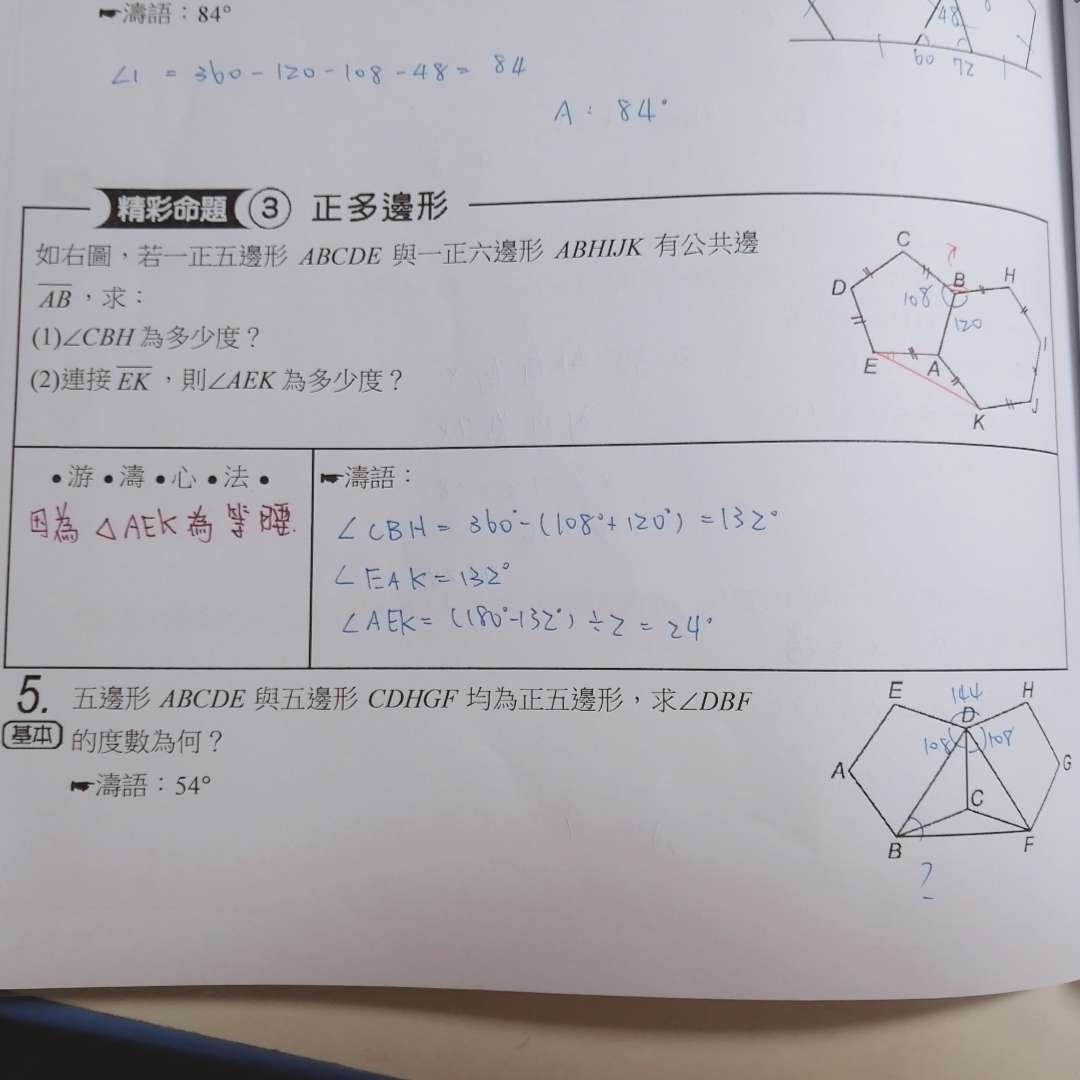 ☛濤語：84°
48
60 72
∠1 = 360 - 120 - 108 - 48 = 84
A : 84°
精彩命題 3 正多邊形
如右圖，若一正五邊形 ABCDE 與一正六邊形 ABHIJK 有公共邊
AB，求：
(1)∠CBH 為多少度？
(2)連接 EK ，則∠AEK 為多少度？
C
B H
D
108
120
I
E A
J
K
•游•濤•心•法•
因為 △AEK為 等腰.
☛濤語：
∠CBH = 360°-(108°+120°) = 132°
∠EAK = 132°
∠AEK = (180°-132°) ÷ 2 = 24°
5. 五邊形 ABCDE 與五邊形 CDHGF 均為正五邊形，求∠DBF
基本 的度數為何？
☛濤語：54°
E 144 H
D
108 108
A G
C
B F
?